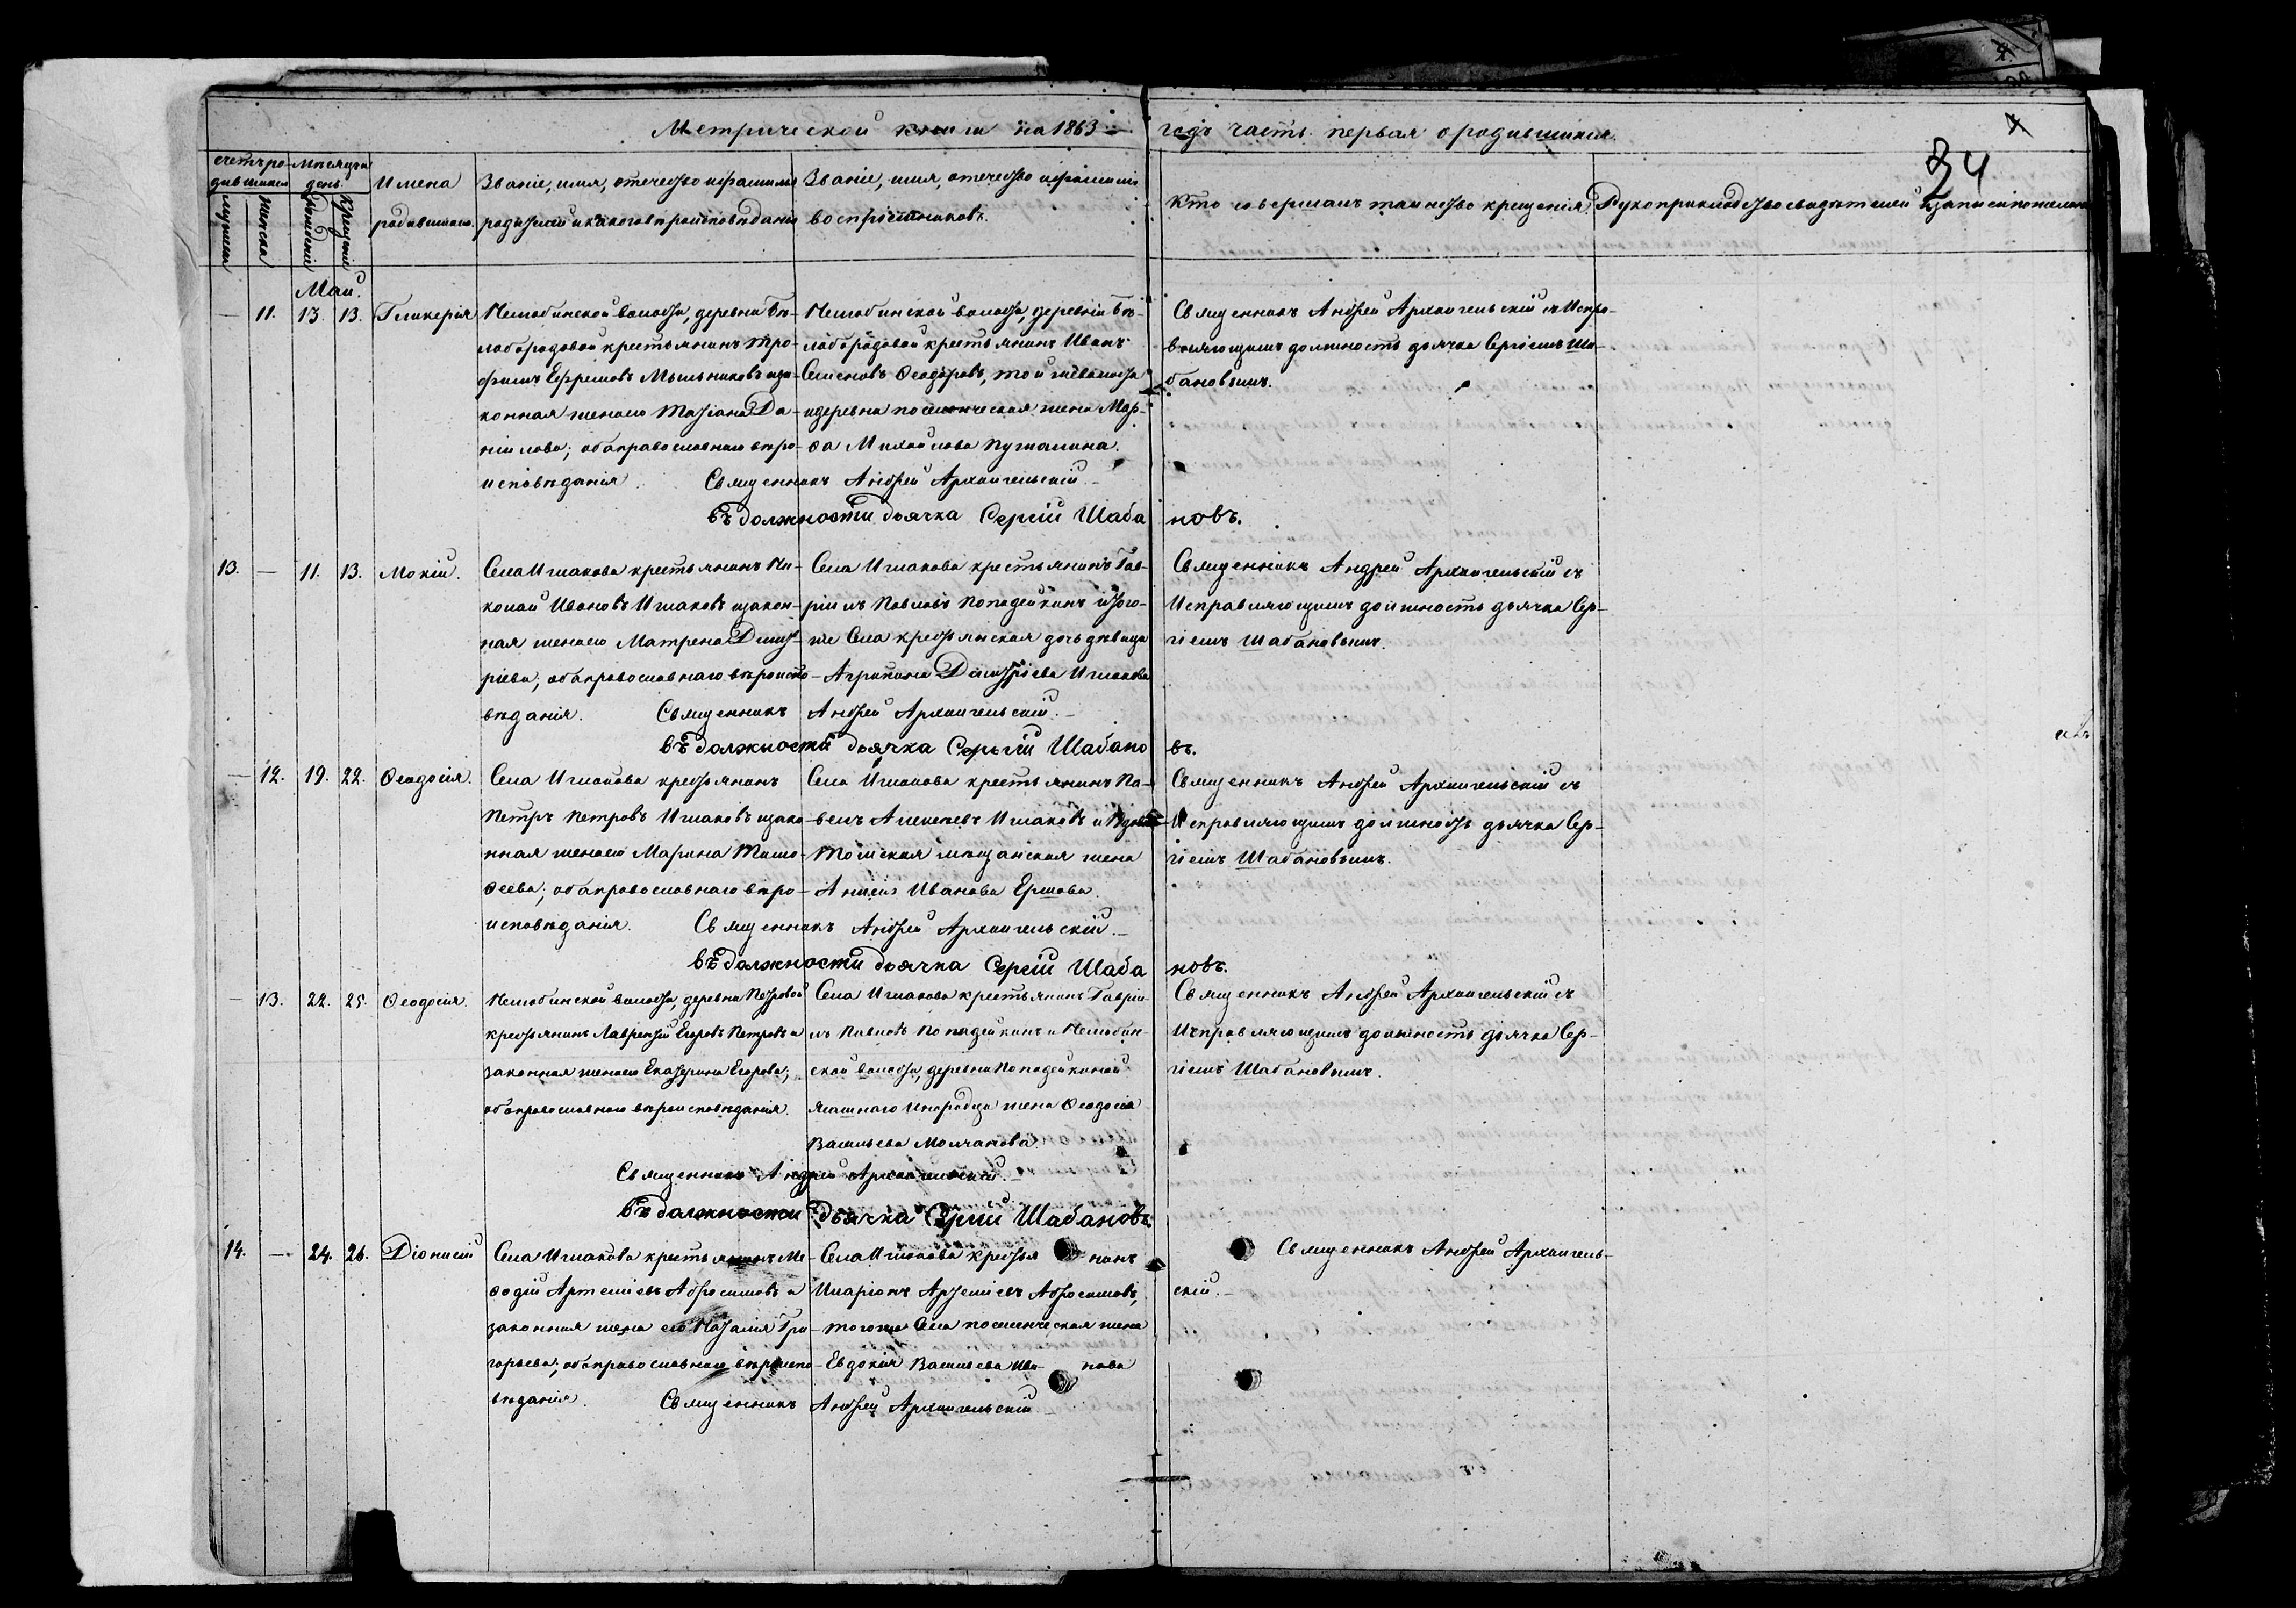 Метрической книги на 1863 годъ часть первая о родившихся.
34
Счетъ родившихся
Мѣсяцъ и день
Имена родившихся.
Званіе, имя, отечество и фамилія родителей и какого вѣроисповѣданія
Званіе, имя, отечество и фамилія воспріемниковъ.
Кто совершалъ таинство крещенія.
Рукоприкладство свидѣтелей записи по желанію
мужеска
женска
рожденіе
крещеніе
Май.
— 11. 13. 13. Гликерія
Нелюбинской волости, деревни Бѣ-
лобородовой крестьянинъ Тро-
фимъ Ефремовъ Мыльниковъ и за-
конная жена его Татіана Да-
нілова; оба православнаго вѣро-
исповѣданія.
Нелюбинской волости, деревни Бѣ-
лобородовой крестьянинъ Иванъ
Семеновъ Ѳеодоровъ, той же волости
и деревни поселенческая жена Мар-
ѳа Михайлова Путалина.
Священникъ Андрей Архангельскій съ Испра-
вляющимъ должность дьячка Сергіемъ Ша-
бановымъ.
Священникъ Андрей Архангельскій.
Въ должности дьячка Сергій Шабановъ.
13. — 11. 13. Мокій.
Села Ишакова крестьянинъ Ни-
колай Ивановъ Ишаковъ и закон-
ная жена его Матрена Димит-
ріева; оба православнаго вѣроиспо-
вѣданія.
Села Ишакова крестьянинъ Гав-
ріилъ Павловъ Попадейкинъ и того-
же Села крестьянская дочь дѣвица
Агрипина Димитріева Ишакова
Священникъ Андрей Архангельскій съ
Исправляющимъ должность дьячка Сер-
гіемъ Шабановымъ.
Священникъ Андрей Архангельскій.
Въ должности дьячка Сергій Шабановъ.
— 12. 19. 22. Ѳеодосія.
Села Ишакова крестьянинъ
Петръ Петровъ Ишаковъ и зако-
нная жена его Марина Тимо-
ѳеева; оба православнаго вѣро-
исповѣданія.
Села Ишакова крестьянинъ Па-
велъ Алексѣевъ Ишаковъ и
Томская мѣщанская жена
Анисія Иванова Ершова.
Священникъ Андрей Архангельскій съ
Исправляющимъ должность дьячка Сер-
гіемъ Шабановымъ.
Священникъ Андрей Архангельскій.
Въ должности дьячка Сергій Шабановъ.
— 13. 22. 25. Ѳеодосія.
Нелюбинской волости, деревни Петровой
крестьянинъ Лаврентій Егоровъ Петровъ и
законная жена его Екатерина Егорова;
оба православнаго вѣроисповѣданія.
Села Ишакова крестьянинъ Гавріи-
лъ Павловъ Попадейкинъ и Нелюбин-
ской волости, деревни Попадейкиной
ясашнаго инородца жена Ѳеодосія
Васильева Молчанова
Священникъ Андрей Архангельскій съ
Исправляющимъ должность дьячка Сер-
гіемъ Шабановымъ.
Священникъ Андрей Архангельскій.
Въ должности дьячка Сергій Шабановъ.
14. — 24. 26. Діонисій
Села Ишакова крестьянинъ Ме-
ѳодій Артеміевъ Абросимовъ и
законная жена его Наталія Гри-
горьева; оба православнаго вѣроиспо-
вѣданія.
Села Ишакова крестьянинъ
Иларіонъ Артеміевъ Абросимовъ,
того же Села поселенческая жена
Евдокія Васильева Иванова
Священникъ Андрей Архангель-
скій.
Священникъ Андрей Архангельскій